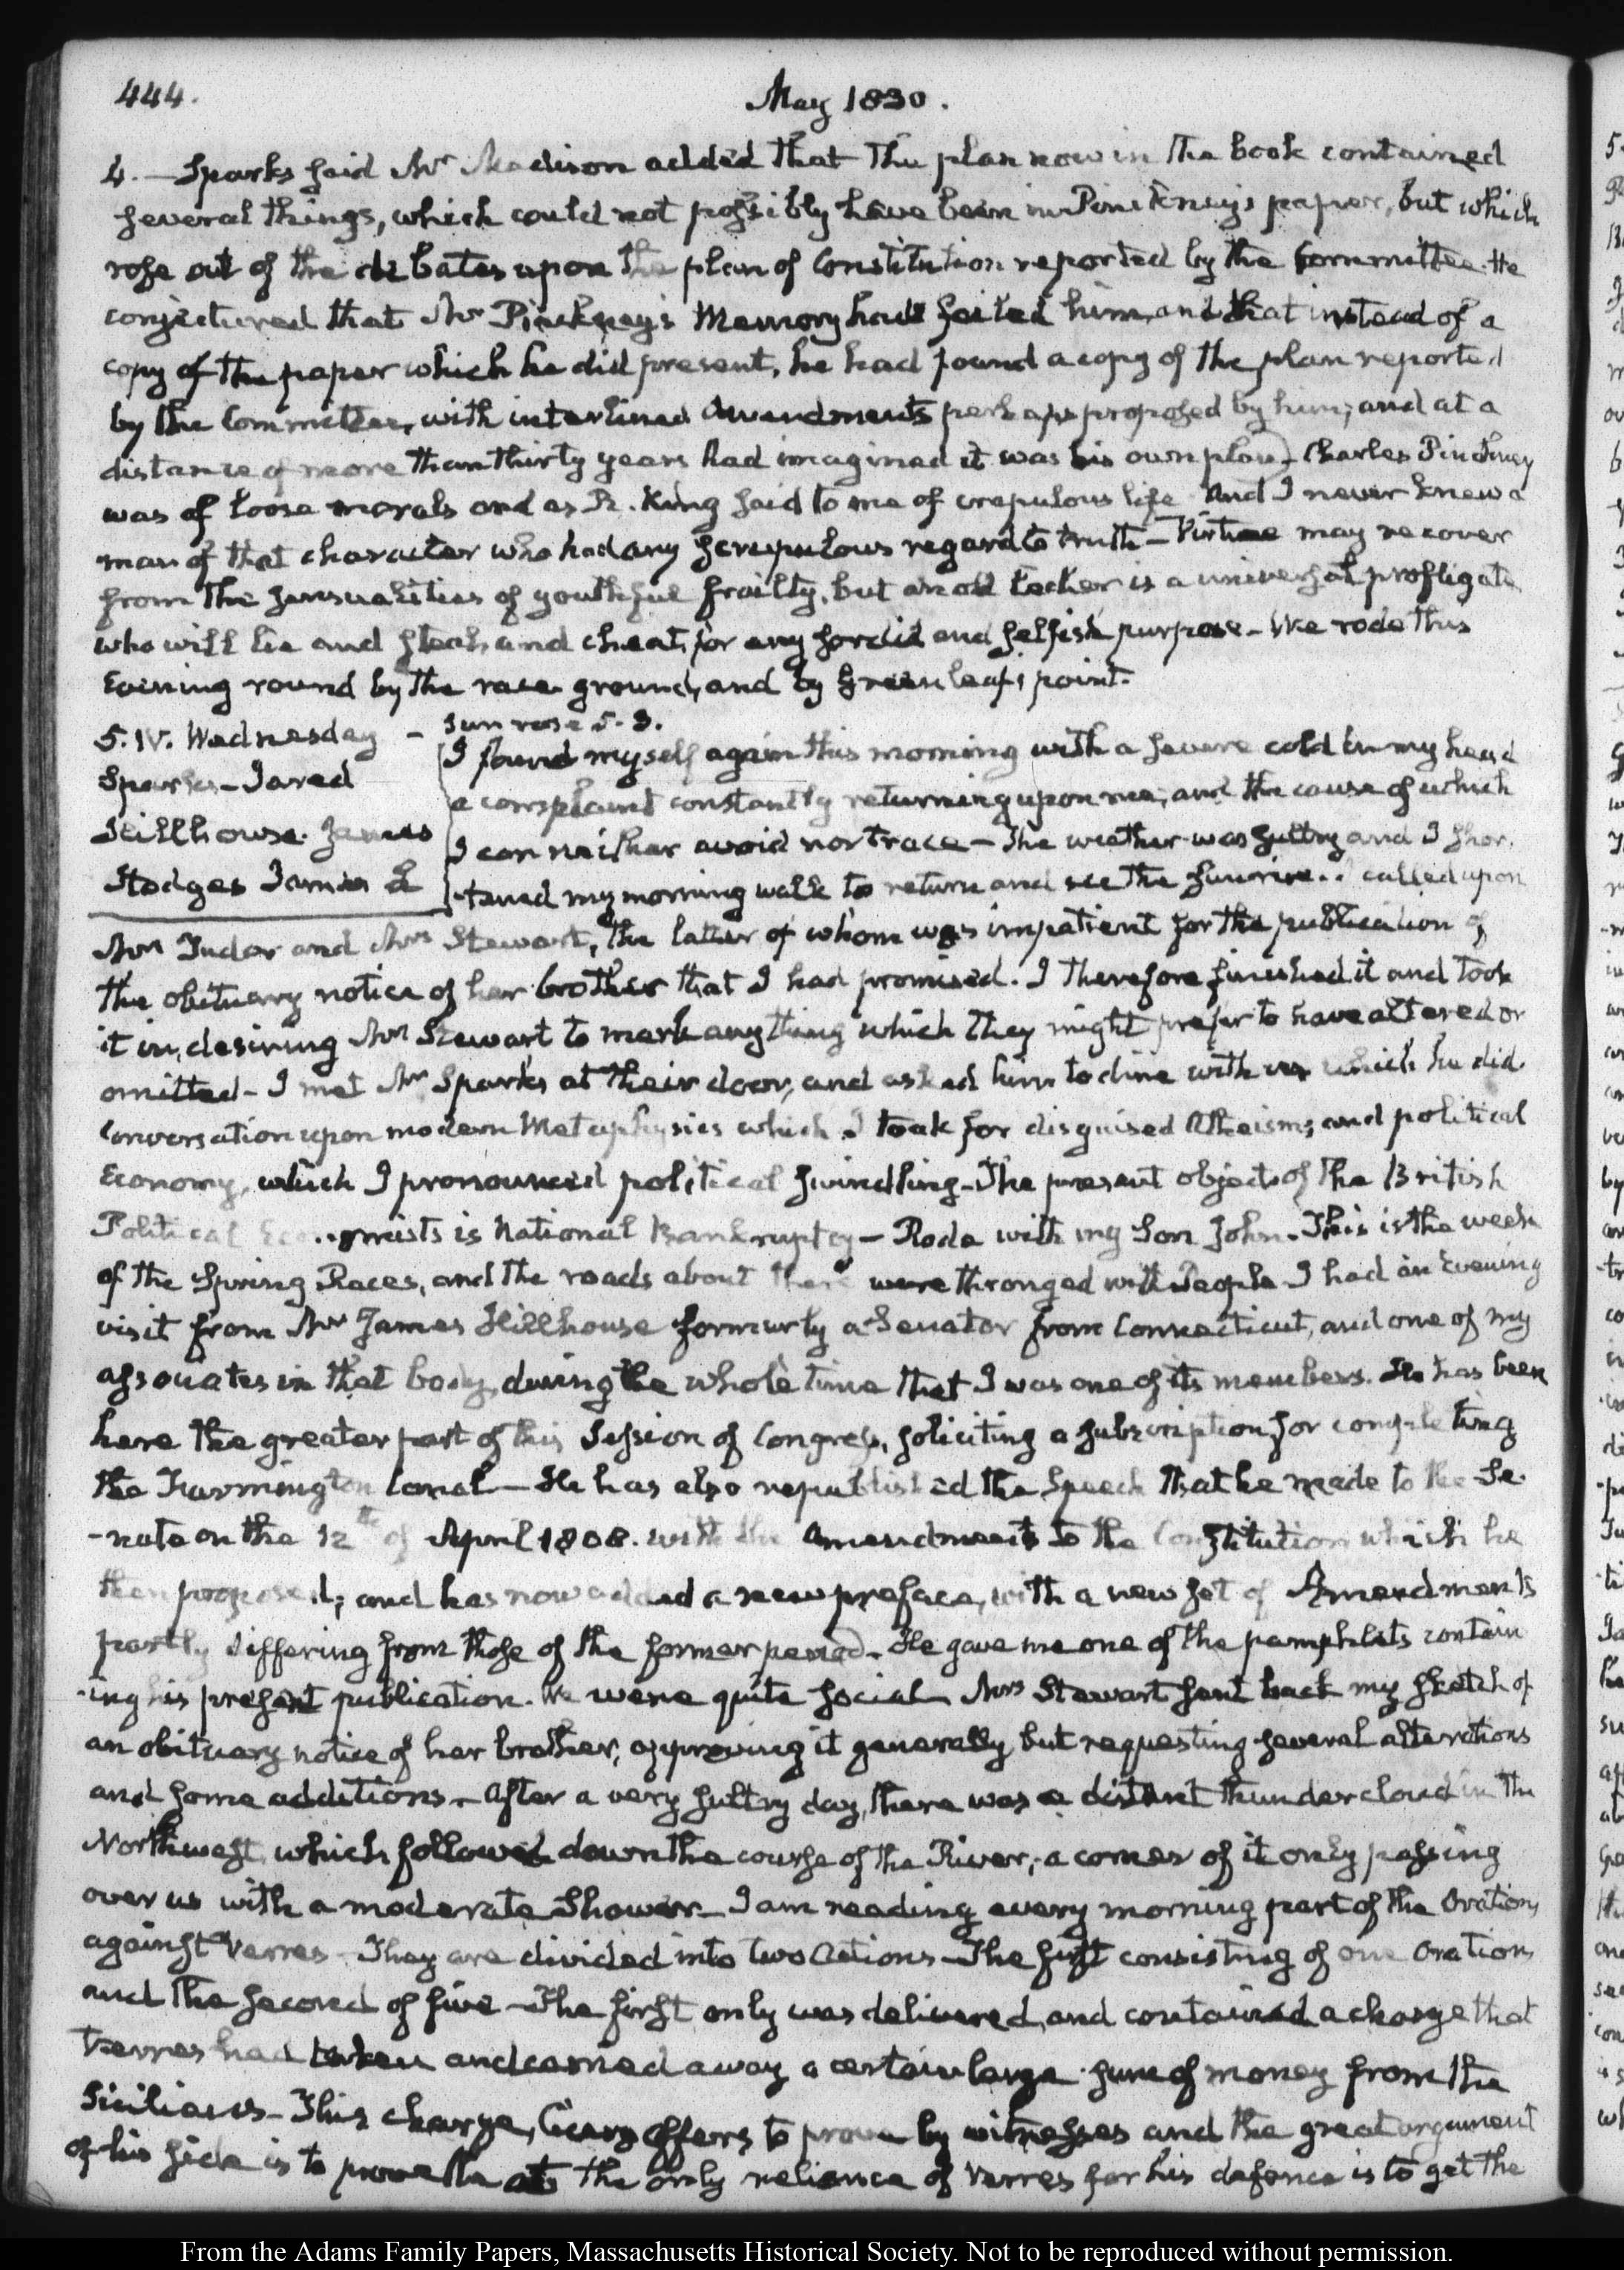 444.
May 1830.
4. — Sparks said Mr Madison added that the plan now in the book contained
several things, which could not possibly have been in Pinckney's paper, but which
rose out of the debates upon the plan of Constitution reported by the Committee. He
conjectured that Mr Pinckney's Memory had failed him, and that instead of a
copy of the paper which he did present, he had found a copy of the plan reported
by the Committee, with interlined Amendments perhaps proposed by him; and at a
distance of more than thirty years had imagined it was his own plan — Charles Pinckney
was of loose morals and as R. King said to me of crapulous life And I never knew a
man of that character who had any scrupulous regard to truth — Virtue may recover
from the sensualities of youthful frailty, but an old lecher is a universal profligate
who will lie and steal, and cheat, for any sordid and selfish purpose — We rode this
Evening round by the race ground, and by Greenleaf's point.
5. IV. Wednesday — Sun rose 5. 3.
Sparks — Jared
Hillhouse. James
Hodges James L
I found myself again this morning with a severe cold in my head
a complaint constantly returning upon me; and the cause of which
I can neither avoid nor trace — The weather was sultry and I shor-
-tened my morning walk to return and see the Sunrise. I called upon
Mrs Tudor and Mrs Stewart, the latter of whom was impatient for the publication of
the obituary notice of her brother that I had promised. I therefore finished it and took
it in, desiring Mrs Stewart to mark any thing which they might prefer to have altered or
omitted — I met Mr Sparks at their door, and asked him to dine with us which he did.
Conversation upon modern Metaphysics which I took for disguised Atheism; and political
Economy, which I pronounced political swindling — The present object of the British
Political Economists is National Bankruptcy — Rode with my Son John. This is the week
of the Spring Races, and the roads about there were thronged with People I had an Evening
visit from Mr James Hillhouse formerly a Senator from Connecticut, and one of my
associates in that body, during the whole time that I was one of its members. He has been
here the greater part of this Session of Congress, soliciting a subscription for completing
the Farmington Canal — He has also republished the Speech that he made to the Se-
-nate on the 12th of April 1808. with the Amendments to the Constitution which he
then proposed; and has now added a new preface, with a new set of Amendments
partly differing from those of the former period. He gave me one of the pamphlets contain
-ing his present publication. We were quite social Mrs Stewart sent back my sketch of
an obituary notice of her brother, approving it generally but requesting several alterations
and some additions — After a very sultry day, there was a distant thunder cloud in the
Northwest, which followed down the course of the River; a corner of it only passing
over us with a moderate Shower — I am reading every morning part of the Orations
against Verres — They are divided into two Actions — The first consisting of one Oration
and the second of five — The first only was delivered, and contained a charge that
Verres had taken and carried away a certain large sum of money from the
Sicilians — This charge, Cicero offers to prove by witnesses and the great argument
of his side is to prove that the only reliance of Verres for his defence is to get the
From the Adams Family Papers, Massachusetts Historical Society. Not to be reproduced without permission.